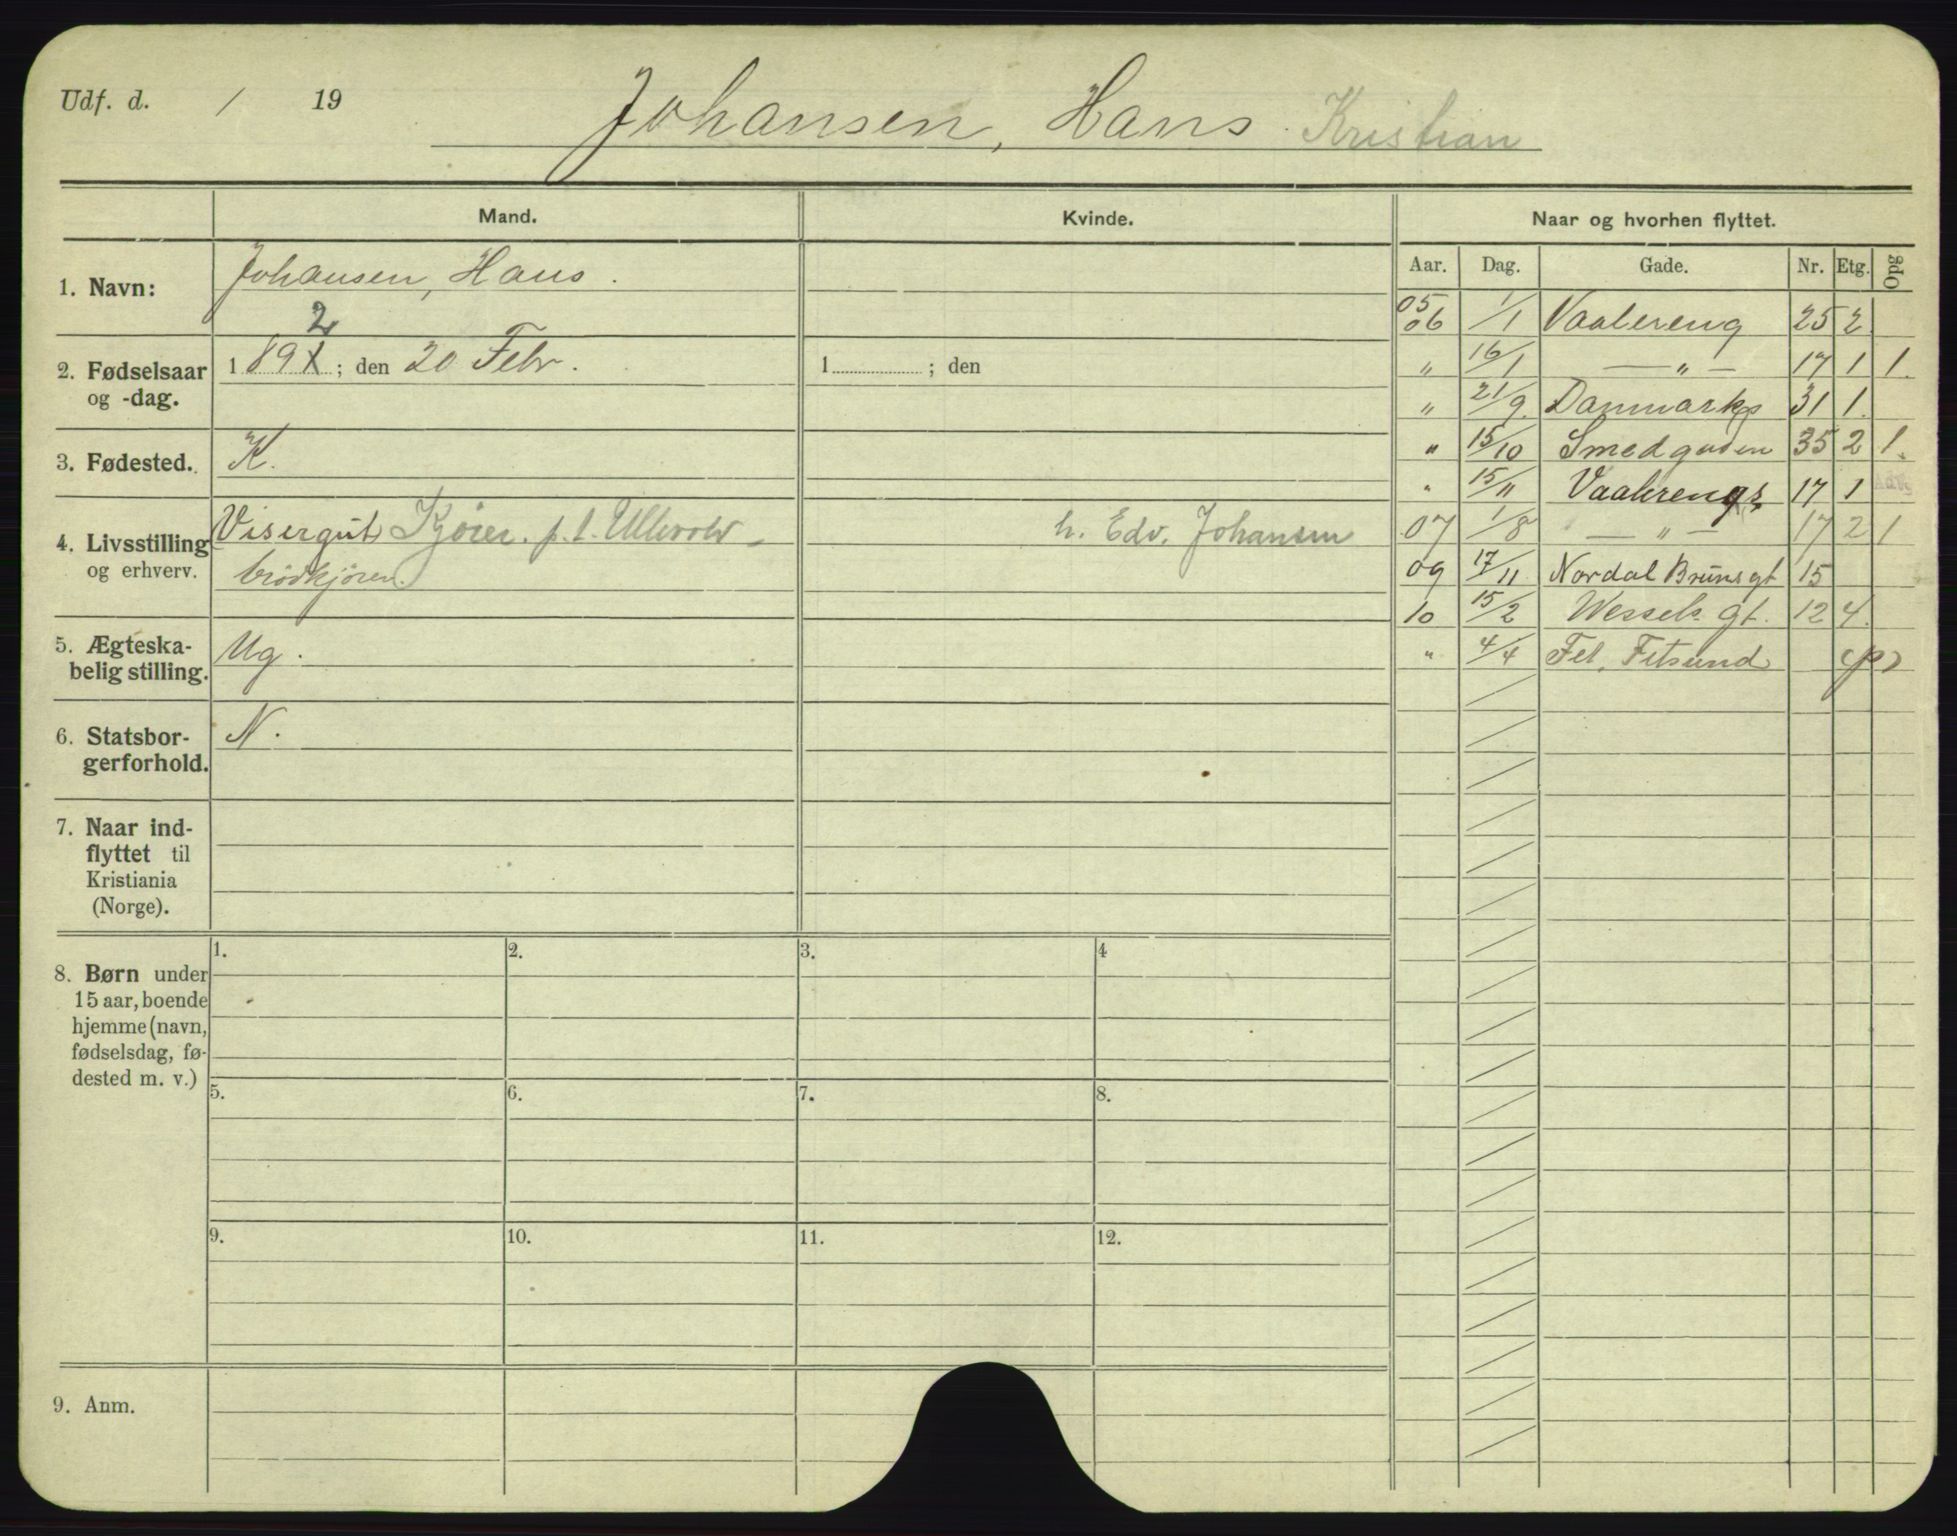 Udf. d. / 19
Johansen, Hans Kristian
Mand. Kvinde. Naar og hvorhen flyttet.
Aar. Dag. Gade. Nr. Etg. Opg
1. Navn: Johansen, Hans.
2
2. Fødselsaar og -dag. 189X; den 20 Febr. 1 ; den
3. Fødested. K.
4. Livsstilling og erhverv. Visergut Kjører. p. t. Ullevold h. Edv. Johansen
brödkjörer.
5. Ægteskabelig stilling. Ug.
6. Statsborgerforhold. N.
7. Naar indflyttet til Kristiania (Norge).
8. Børn under 15 aar, boende hjemme (navn, fødselsdag, fødested m. v.)
1. 2. 3. 4
5. 6. 7. 8.
9. 10. 11. 12.
9. Anm.
05
06 1/1 Vaalereng 25 2
" 16/1 — " — 17 1 1.
" 21/9. Danmarks 31 1.
" 15/10 Smedgaden 35 2 1.
" 15/11 Vaalerengs 17 1
07 1/8 — " — 17 2 1
09 17/11 Nordal Bruns gt 15
10 15/2 Wessels gt. 12 4.
" 4/4 Fet, Fetsund (p)